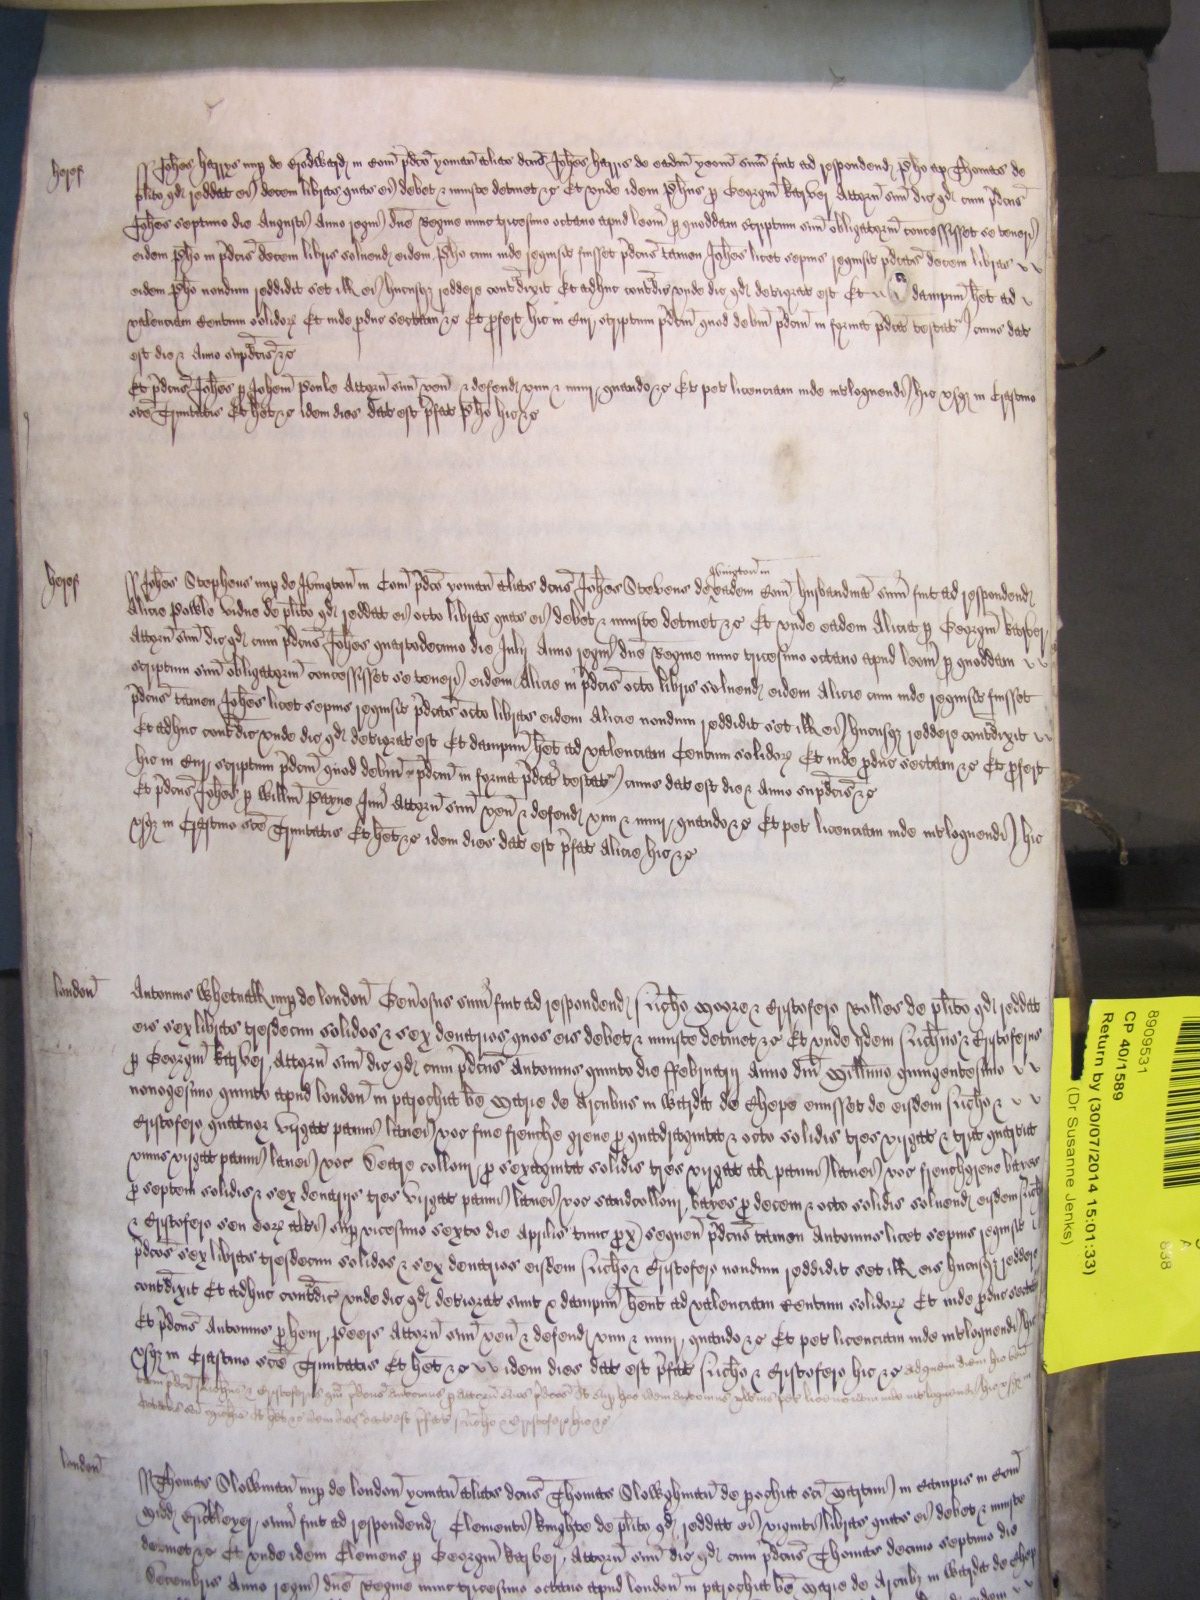 heref
Johes harrys nup de Bodward in Com pdco yoman alias dcus Johes harrys de eadm yoom sum fuit ad respondend Pho ap Thomas de
plito qd reddat ei decem libras quas ei debet & iniuste detinet &c Et unde idem Phus p Georgm karver Attorn suu dic qd cum pdcus
Johes septimo die Augusti Anno regni dne Regine nunc tricesimo octavo apud leom p quoddam scriptum suu obligatorm concessisset se teneri
eidem Pho in pdcis decem libris solvend eidem Pho cum inde requisit fuisset pdcus tamen Johes licet sepius requisit pdcas decem libras
eidem Pho nondum reddidit set ill ei hucusq reddere contradixit Et adhuc contradic unde dic qd deteriorat est Et dampnum het ad
valenciam Centum solidor Et inde produc sectam &c Et profert hic in Cur scriptum pdcm quod debm pdcm in forma pdca testatr cuius dat
est die & Anno supdcis &c
Et pdcus Johes p Johem Poule Attorn suu ven & defend vim & iniur quando &c Et pet licenciam inde interloquendi hic usq in Crastino
sce Trinitatis Et het &c idem dies dat est pfat Pho hic &c
heref
Johes Stephens nup de Ivington in Com pdco yoman alias dcus Johes Stevens de Ivington in eadem Com husbandma sum fuit ad respondend
Alicie Poble vidue de plito qd reddat ei octo libras quas ei debet & iniuste detinet &c Et unde eadem Alicia p Georgm karver
Attorn suu dic qd cum pdcus Johes quartodecimo die Julij Anno regni dne Regine nunc tricesimo octavo apud leom p quoddam
scriptum suu obligatorm concessisset se teneri eidem Alicie in pdcis octo libris solvend eidem Alicie cum inde requisit fuisset
pdcus tamen Johes licet sepius requisit pdcas octo libras eidem Alicie nondum reddidit set ill ei hucusq reddere contradixit
Et adhuc contradic unde dic qd deteriorat est Et dampnum het ad valenciam Centum solidor Et inde produc sectam &c Et profert
hic in Cur scriptum pdcm quod debm pdcm in forma pdca testatr cuius dat est die & Anno supdcis &c
Et pdcus Johes p Willm Payne Jun Attorn suu ven & defend vim & iniur quando &c Et pet licenciam inde interloquendi hic
usq in Crastino sce Trinitatis Et het &c idem dies dat est pfat Alicie hic &c
london
Antonius Whetnall nup de london Generosus sum fuit ad respondend Hugoni Moore & Cristofero Rolles de plito qd reddat
eis sex libras tresdecim solidos & sex denarios quos eis debet & iniuste detinet &c Et unde ijdem & Cristoferus
p Georgm karver Attorn suu dic qd cum pdcus Antonius quinto die ffebruarij Anno dni Millimo quingentesimo
nonogesimo quinto apud london in parochia be Marie de Arcubus in Warda de Chepe emisset de eisdem &
Cristofero quatuor virgat panni lanei voc fine frenche grene p quadraginta & octo solidis tres virgat & tria quartia
unius virgat panni lanei voc collour p sexaginta solidis tres virgat al panni lanei voc frenchgrene bayes
p septem solidis & sex denarijs tres virgat panni lanei voc sandcollour bayes p decem & octo solidis solvend eisdem
& Cristofero seu eor alteri sup vicesimo sexto die Aprilis tunc prox sequen pdcus tamen Antonius licet sepius requisit
pdcas sex libras tresdecim solidos & sex denarios eisdem & Cristofero nondum reddidit set ill eis hucusq reddere
contradixit Et adhuc contradic unde dic qd deteriorat sunt & dampnum hent ad valenciam Centum solidor Et inde produc sectam
Et pdcus Antonius p henr Peers Attorn suu ven & defend vim & iniur quando &c Et pet licenciam inde interloquendi hic
usq in Crastino sce Trinitatis Et het &c idem dies dat est pfat & Cristofero hic &c ad quem diem hic
& Cristoferus pdcus Antonius p attorn suu pdcm Et sup hoc idem Antonius ulterius pet licenciam inde interloquendi hic usq in
sci Michis Et het &c idem dies dat est pfat & Cristofero hic &c
london
Thomas Slowman nup de london yoman alias dcus Thomas Slowghman de pochia sci Martini in Campis in Com
Midd Bricklayer sum fuit ad respondend Clementi knighte de plito qd reddat ei viginti libras quas ei debet & iniuste
detinet &c Et unde idem Clemens p Georgm karver Attorn suu dic qd cum pdcus Thomas decimo septimo die
Decembris Anno regni dne Regine nunc tricesimo octavo apud london in parochia be Marie de Arcubz in Warda de Chep
89099531
CP 40/1589
Return by (30/07/2014 15:01:33)
(Dr Susanne Jenks)
A
838